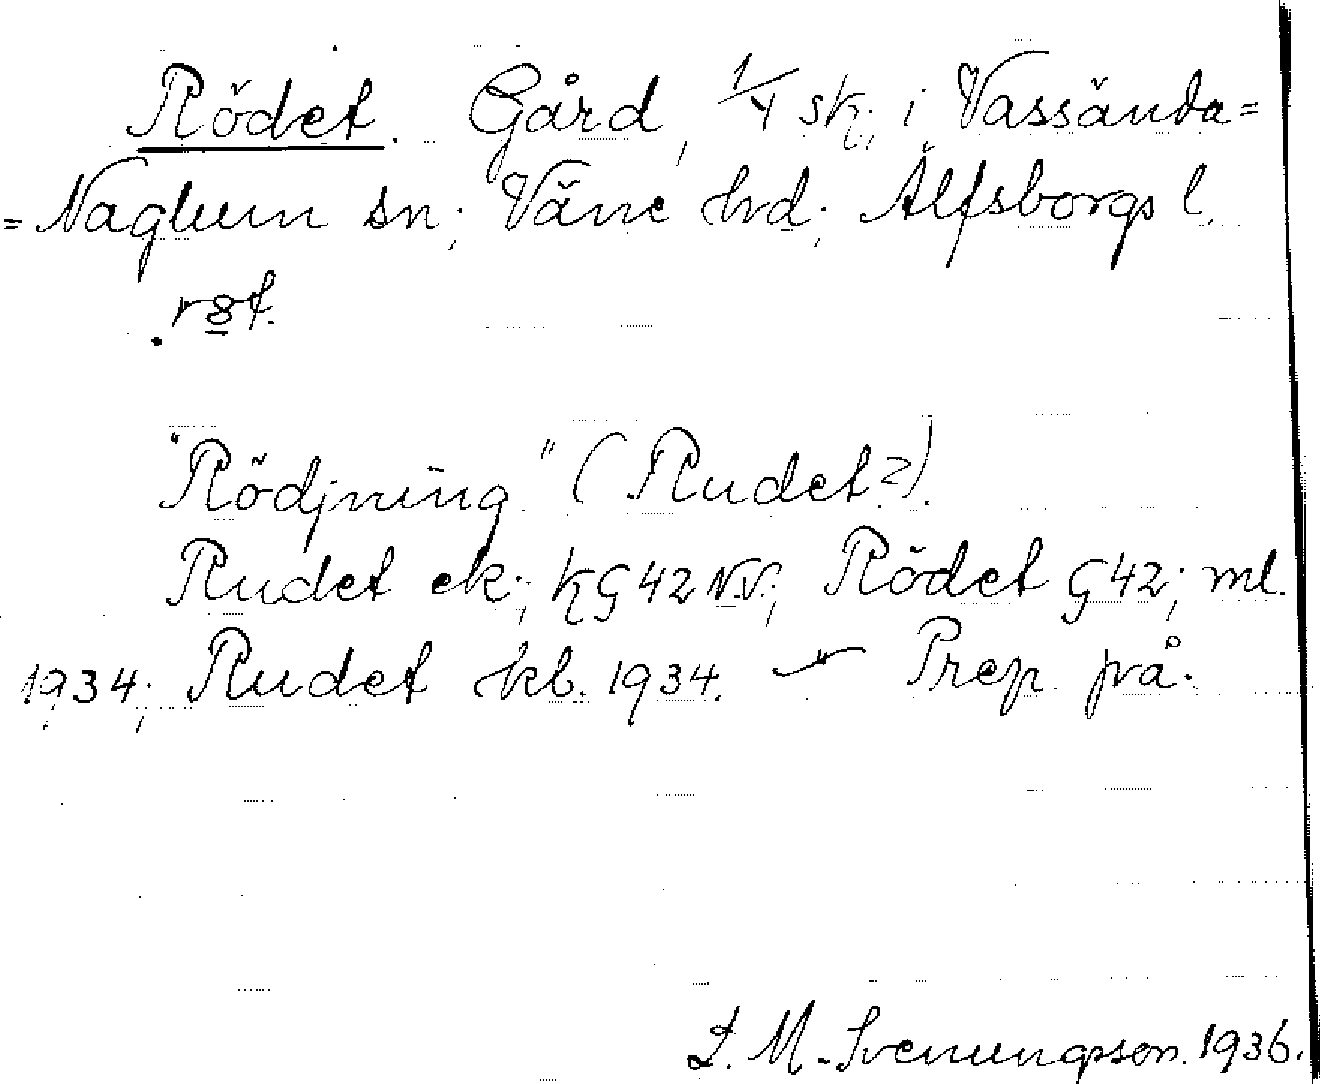 Rödet. Gård, 1/4 sk; i Vassända=
=Naglum sn; Väne hrd; Älfsborgs l.
"Rödjning." (Rudet?).
Rudet ek; KG 42 NV; Rödet G 42; ml.
1934; Rudet kb. 1934. — Prep. på.
L. M. Svenungsson. 1936.